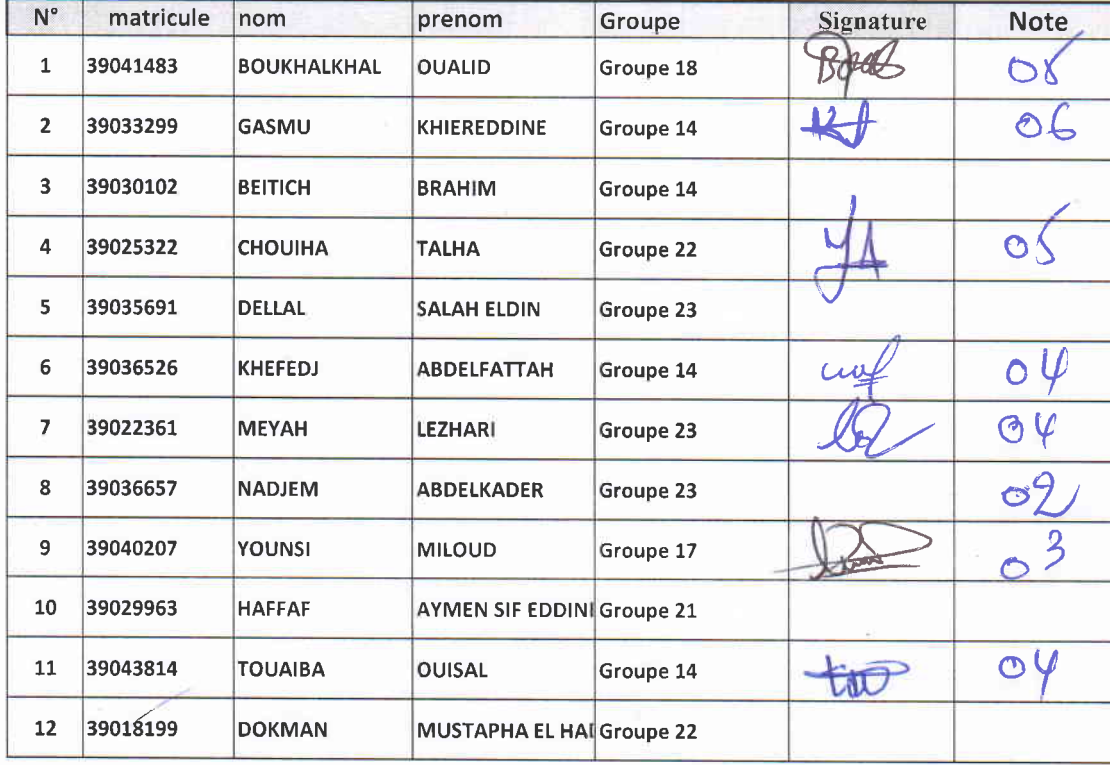 N° matricule nom prenom Groupe Signature Note
1 39041483 BOUKHALKHAL OUALID Groupe 18 05
2 39033299 GASMU KHIEREDDINE Groupe 14 06
3 39030102 BEITICH BRAHIM Groupe 14
4 39025322 CHOUIHA TALHA Groupe 22 05
5 39035691 DELLAL SALAH ELDIN Groupe 23
6 39036526 KHEFEDJ ABDELFATTAH Groupe 14 04
7 39022361 MEYAH LEZHARI Groupe 23 04
8 39036657 NADJEM ABDELKADER Groupe 23 02
9 39040207 YOUNSI MILOUD Groupe 17 03
10 39029963 HAFFAF AYMEN SIF EDDIN Groupe 21
11 39043814 TOUAIBA OUISAL Groupe 14 04
12 39018199 DOKMAN MUSTAPHA EL HA Groupe 22